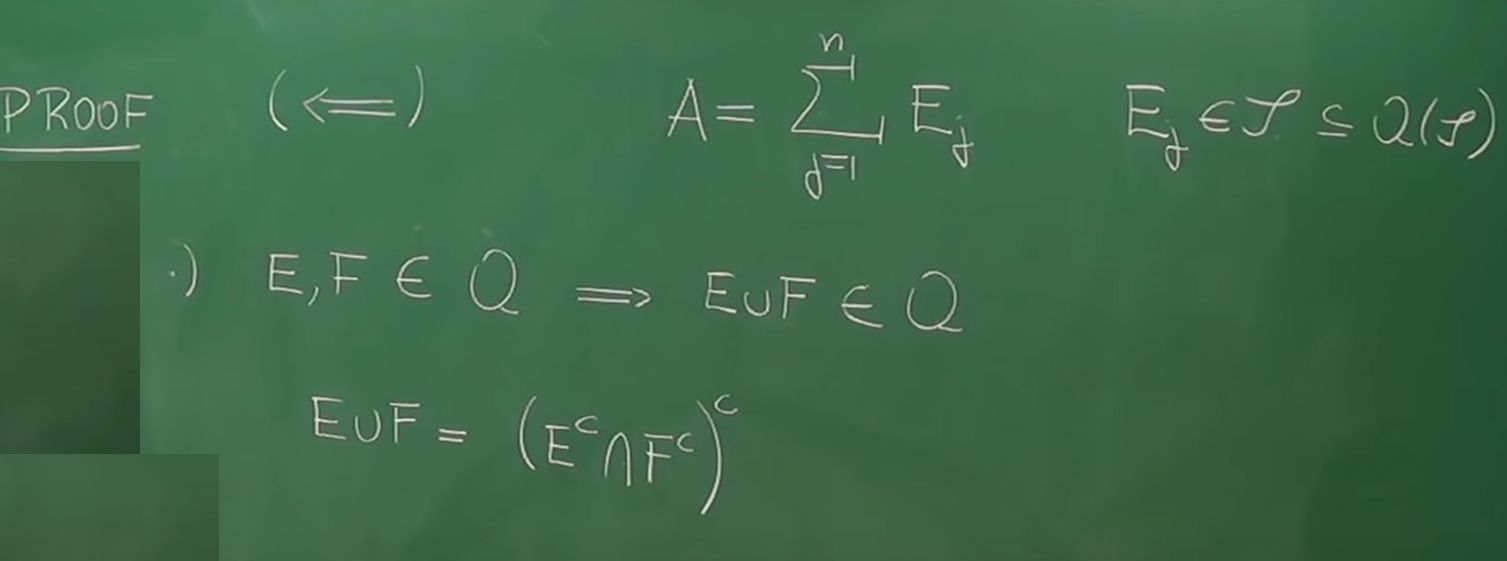 PROOF (⇐) A = ∑_{j=1}^{n} E_j E_j ∈ 𝒮 ⊆ Q(𝒮)
·) E, F ∈ Q ⟹ E∪F ∈ Q
E∪F = (E^c ∩ F^c)^c